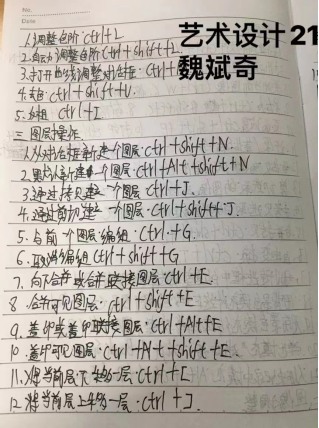 No.
Date
艺术设计21
魏斌奇
1.调整色阶 ctrl+L
2.自动调整色阶 ctrl+shift+L
3.打开曲线调整对话框 ctrl+
4.去色 ctrl+shift+U.
5. ctrl+I
三 图层操作
1.从对话框新建一个图层 ctrl+shift+N
2.默认新建一个图层 ctrl+Alt+shift+N
3.通过拷贝建一个图层 ctrl+J.
4.通过剪切建一个图层 ctrl+shift+J
5.与前一个图层编组 ctrl+G.
6.取消编组 ctrl+shift+G
7.向下合并或合并联接图层 ctrl+E.
8.合并可见图层 ctrl+shift+E
9.盖印或盖印联接图层 ctrl+Alt+E
10.盖印可见图层 ctrl+Alt+shift+E.
11.将当前层下移一层 ctrl+[
12.将当前层上移一层 ctrl+].